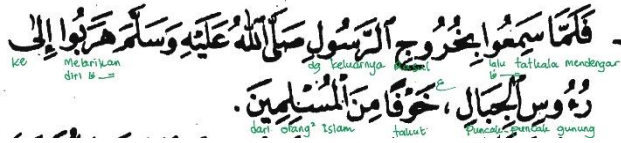 فَلَمَّا سَمِعُوا بِخُرُوجِ الرَّسُولِ صَلَّى اللّٰهُ عَلَيْهِ وَسَلَّمَ هَرَبُوا إِلَى
ke melarikan diri dg keluarnya lalu tatkala mendengar
رُءُوسِ الْجِبَالِ ، خَوْفًا مِنَ الْمُسْلِمِينَ .
dari orang² Islam takut Puncak-puncak gunung